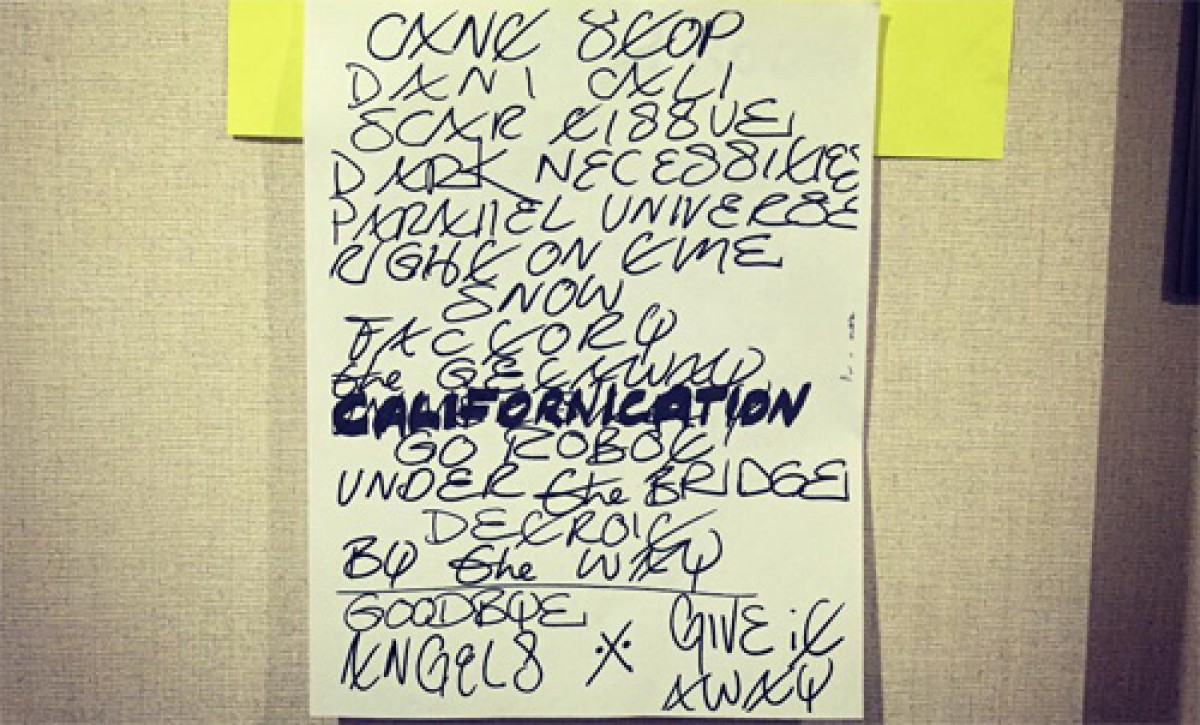 CAN'T STOP
DANI CALI
SCAR TISSUE
DARK NECESSITIES
PARALLEL UNIVERSE
RIGHT ON TIME
SNOW
FACTORY
the GETAWAY
CALIFORNICATION
GO ROBOT
UNDER the BRIDGE
DETROIT
BY the WAY
GOODBYE GIVE iT
ANGELS AWAY